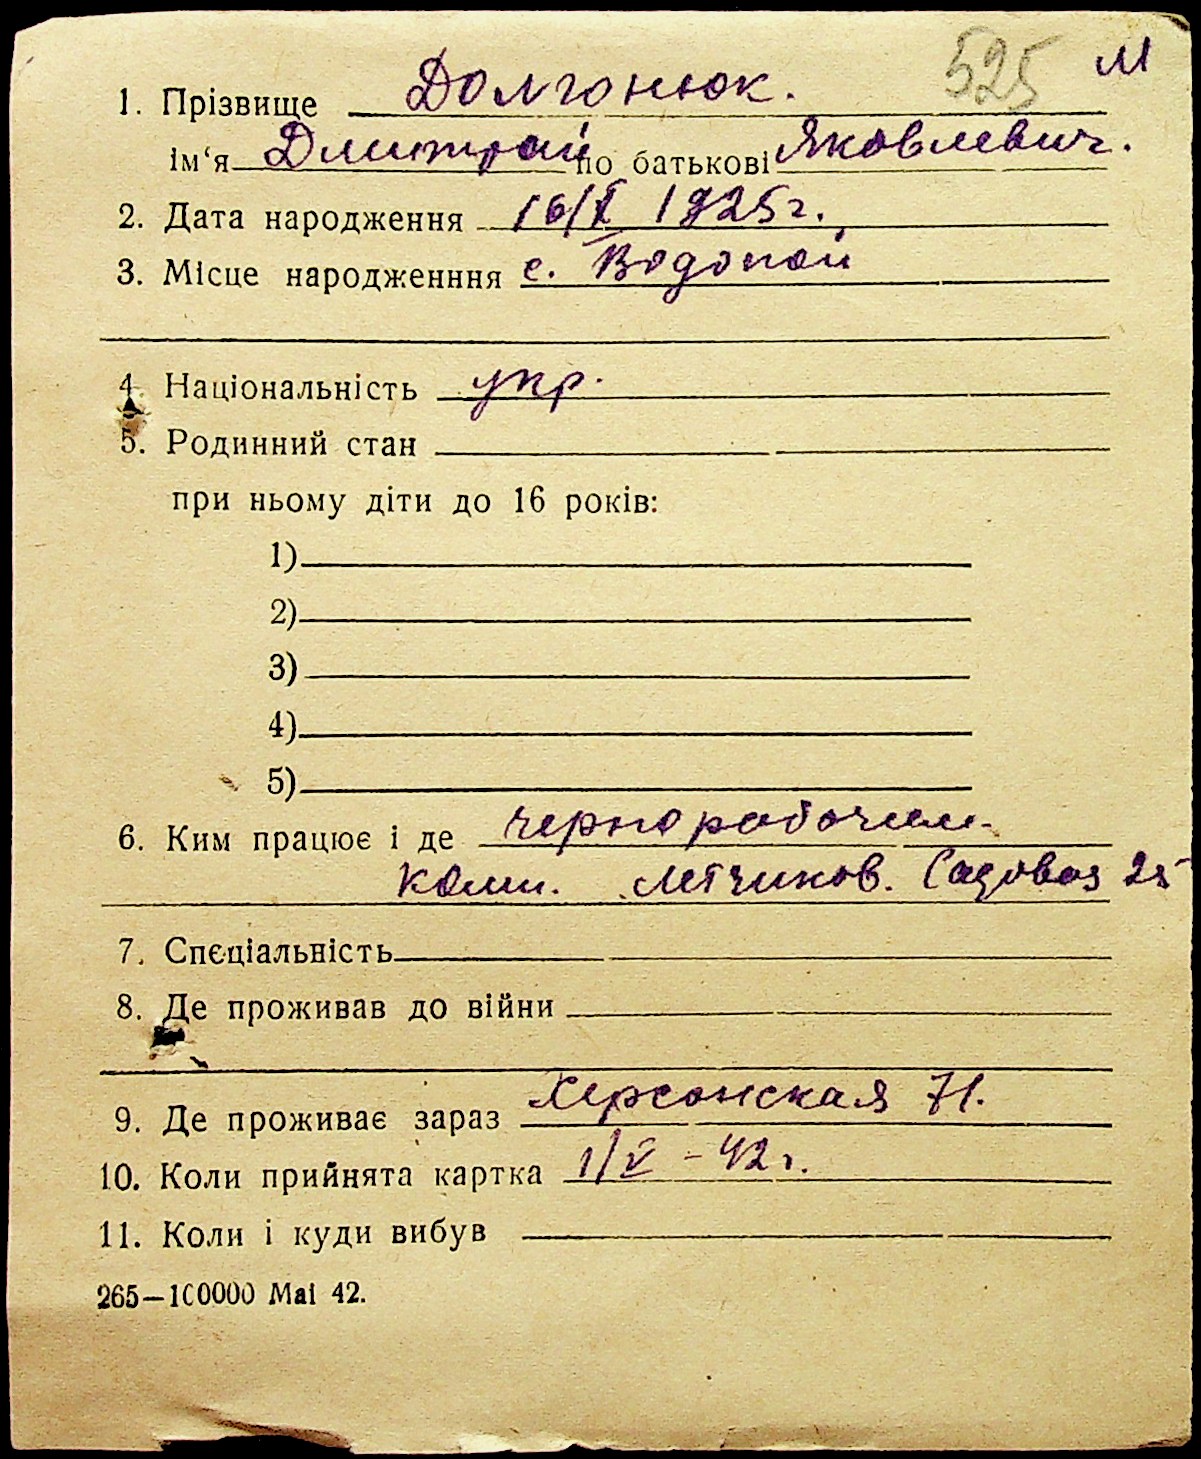 525 М
1. Прізвище Долгонюк.
ім‘я Дмитрий по батькові Яковлевич.
2. Дата народження 16/X 1925г.
3. Місце народженння с. Водопой
4. Національність укр.
5. Родинний стан
при ньому діти до 16 років:
1)
2)
3)
4)
5)
6. Ким працює і де чернорабочим
летчиков. Садовая 25
7. Спєціальність
8. Де проживав до війни
9. Де проживає зараз Херсонская 71.
10. Коли прийнята картка 1/V - 42 г.
11. Коли і куди вибув
265—100000 Mai 42.